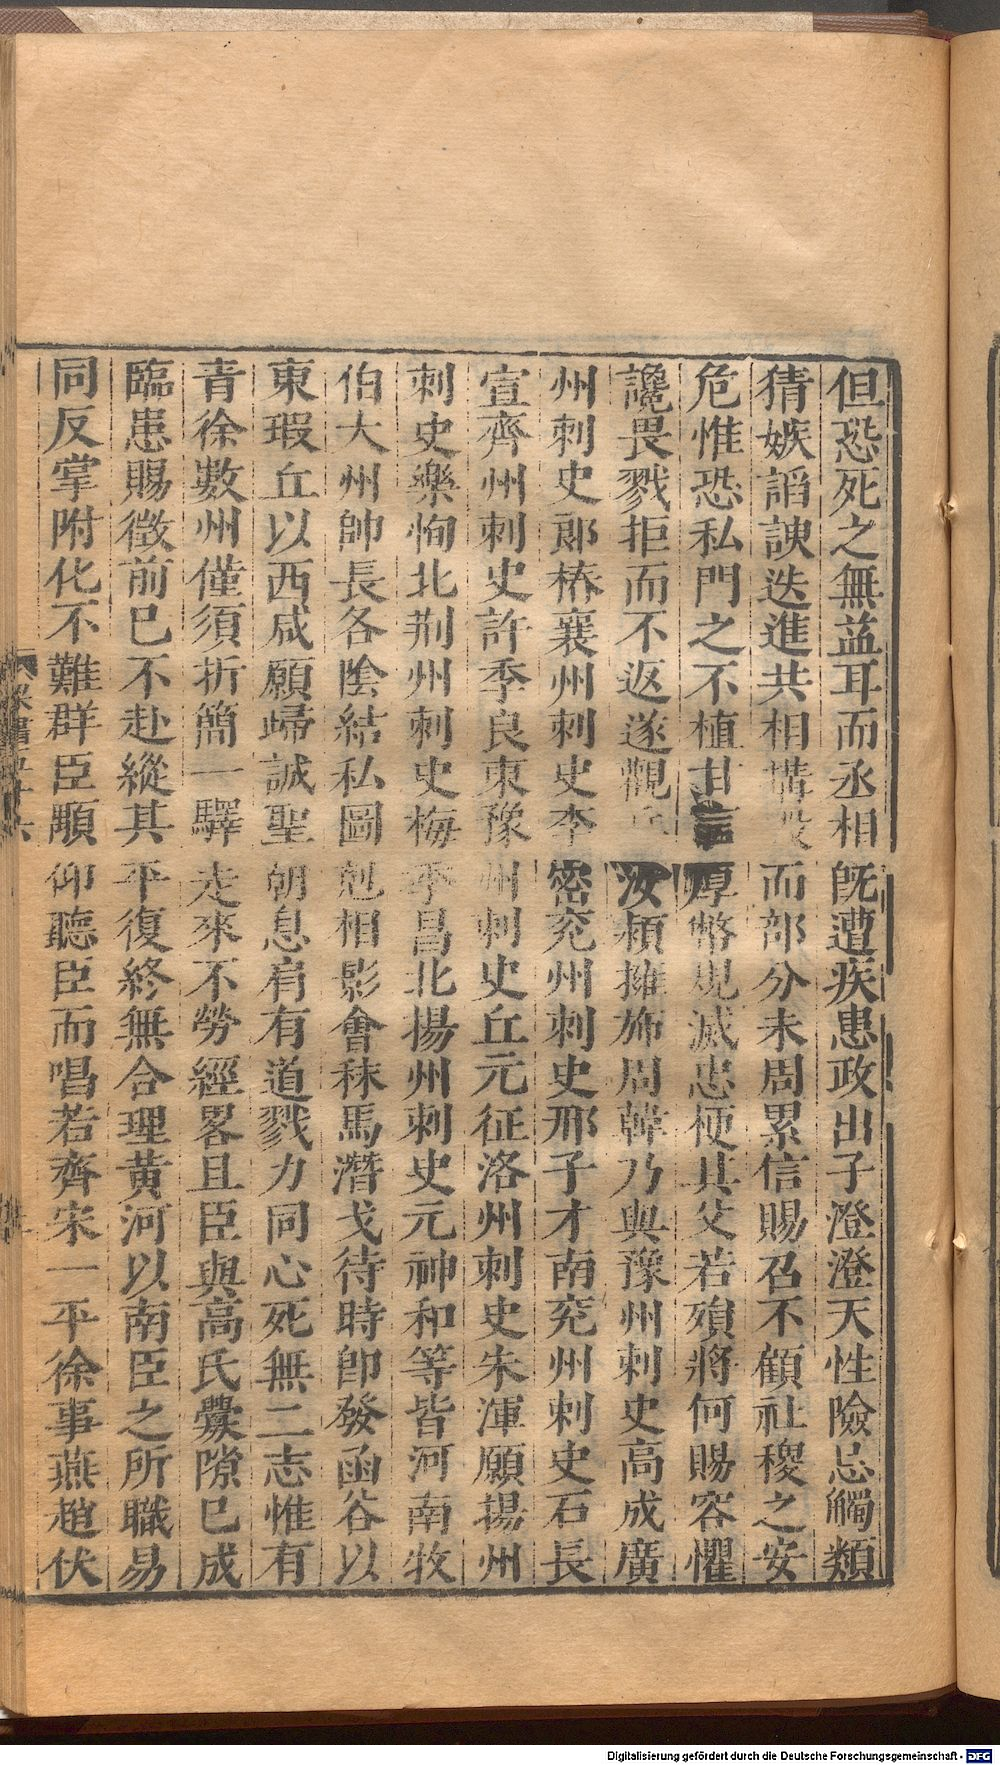 但恐死之無益耳而丞相既遭疾患政出子澄澄天性險忌觸類
猜嫉謟諛迭進共相構毀而部分未周累信賜召不顧社稷之安
危惟恐私門之不植甘言厚幣規滅忠梗其父若殞將何賜容懼
讒畏戮拒而不返遂觀兵汝潁擁斾周韓乃與豫州刺史高成廣
州刺史郎椿襄州刺史李密兖州刺史邢子才南兖州刺史石長
宣齊州刺史許季良東豫州刺史丘元征洛州刺史朱渾願揚州
刺史樂恂北荆州刺史梅季昌北揚州刺史元神和等皆河南牧
伯大州帥長各陰結私圖尅相影會秣馬潛戈待時卽發函谷以
東瑕丘以西咸願歸誠聖朝息肩有道戮力同心死無二志惟有
青徐數州僅須折簡一驛走來不勞經畧且臣與高氏釁隙已成
臨患賜徵前已不赴縱其平復終無合理黄河以南臣之所職易
同反掌附化不難群臣顒仰聽臣而唱若齊宋一平徐事燕趙伏
Digitalisierung gefördert durch die Deutsche Forschungsgemeinschaft - DFG